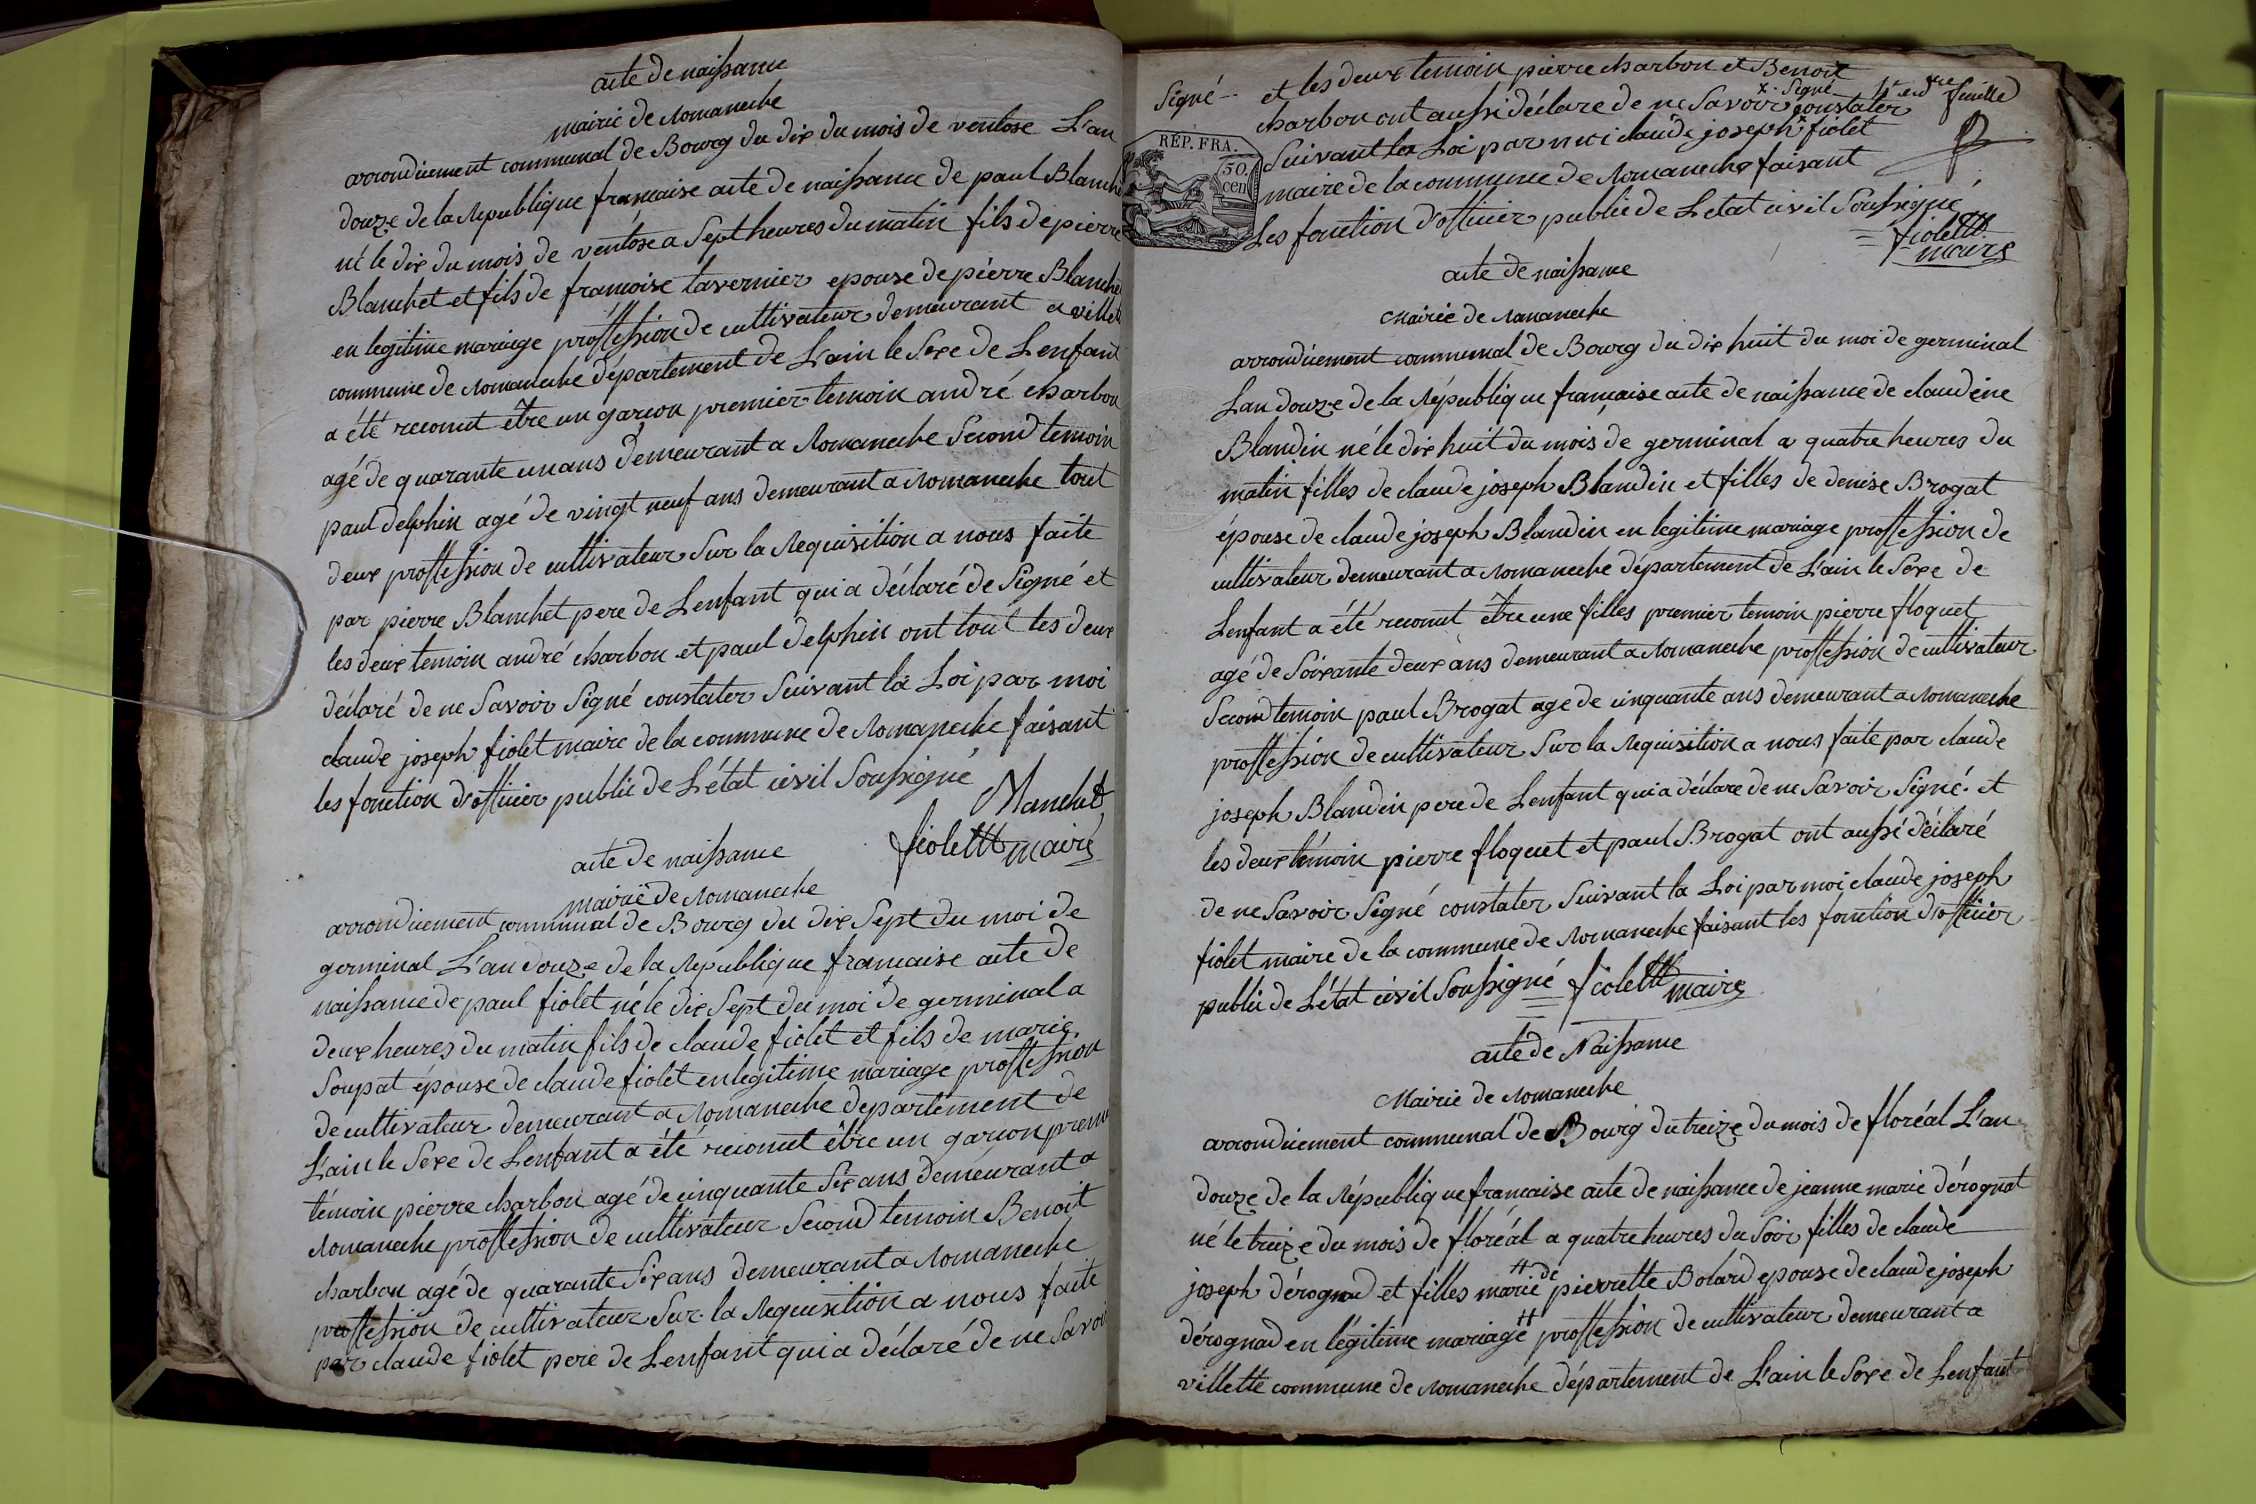 acte de naissance
mairie de Romaneche
arrondicement communal de Bourg du dix du mois de ventose L'an
douze de la Republique francaise acte de naissance de paul Blanchet
né le dix du mois de ventose a Sept heures du matin fils de pierre
Blanchet et fils de francoise tavernier epouse de pierre Blanchet
en legitime mariage proffession de cultivateur demeurant a villet
commune de Romaneche département de L'ain le Sexe de Lenfant
a été reconut être un garcon premier temoin andré charbon
agé de quarante un ans demeurant a Romaneche Second temoin
paul delphin agé de vingt neuf ans demeurant a Romaneche tout
deux proffession de cultivateur Sur la Requisition a nous faite
par pierre Blanchet pere de Lenfant qui a déclaré de Signé et
les deux temoin andré charbon et paul delphin ont tout les deux
déclaré de ne Savoir Signé constater Suivant la Loi par moi
claude joseph fiolet maire de la commune de Romaneche faisant
les fonction d'officier public de L'état civil Soussigné
Blanchet
fiolett maire
acte de naissance
mairie de Romaneche
arrondicement communal de Bourg du dix Sept du moi de
germinal L'an douze de la Republique francaise acte de
naissance de paul fiolet né le dix Sept du moi de germinal a
deux heures du matin fils de claude fiolet et fils de marie
Soupat épouse de claude fiolet en legitime mariage proffession
de cultivateur demeurant a Romaneche departement de
L'ain le Sexe de Lenfant a été reconut être un garcon premier
témoin pierre charbon agé de cinquante Six ans demeurant a
Romaneche proffession de cultivateur Second temoin Benoit
charbon agé de quarante Six ans demeurant a Romaneche
proffession de cultivateur Sur la Requisition a nous faite
par claude fiolet pere de Lenfant qui a déclaré de ne Savoir
Signé - et les deux temoin pierre charbon et Benoit
x. Signé
feuille
charbon ont aussi déclare de ne Savoir x constater
Suivant la Loi par moi claude joseph fiolet
maire de la commune de Romaneche faisant
Les fonction d'officier public de Letat civil Soussigné
RÉP. FRA.
50.
cen
fiolett
maire
acte de naissance
Mairie de Romaneche
arrondicement communal de Bourg du dix huit du moi de germinal
Lan douze de la République francaise acte de naissance de claudine
Blandin né le dix huit du mois de germinal a quatre heures du
matin filles de claude joseph Blandin et filles de denise Brogat
épouse de claude joseph Blandin en legitime mariage proffession de
cultivateur demeurant a Romaneche département de L'ain le Sexe de
Lenfant a été reconut être une filles premier temoin pierre floquet
agé de Soixante deux ans demeurant a Romaneche proffession de cultivateur
Second temoin paul Brogat age de cinquante ans demeurant a Romaneche
proffession de cultivateur Sur la Requisition a nous faite par claude
joseph Blandin pere de Lenfant qui a déclare de ne Savoir Signé. et
les deux témoin pierre floquet et paul Brogat ont aussi déclaré
de ne Savoir Signé constater Suivant la Loi par moi claude joseph
fiolet maire de la commune de Romaneche faisant les fonction d'officier
public de L'état civil Soussigné fiolett maire
acte de Naissance
Mairie de Romaneche
arrondicement communal de Bourg du treize du mois de floréal L'an
douze de la République francaise acte de naissance de jeanne marie dérognat
né le treize du mois de floréal a quatre heures du Soir filles de claude
joseph dérognad et filles marie de pierrette Bolard epouse de claude joseph
dérognad en légitime mariage proffession de cultivateur demeurant a
villette commune de Romaneche département de L'ain le Sexe de Lenfant